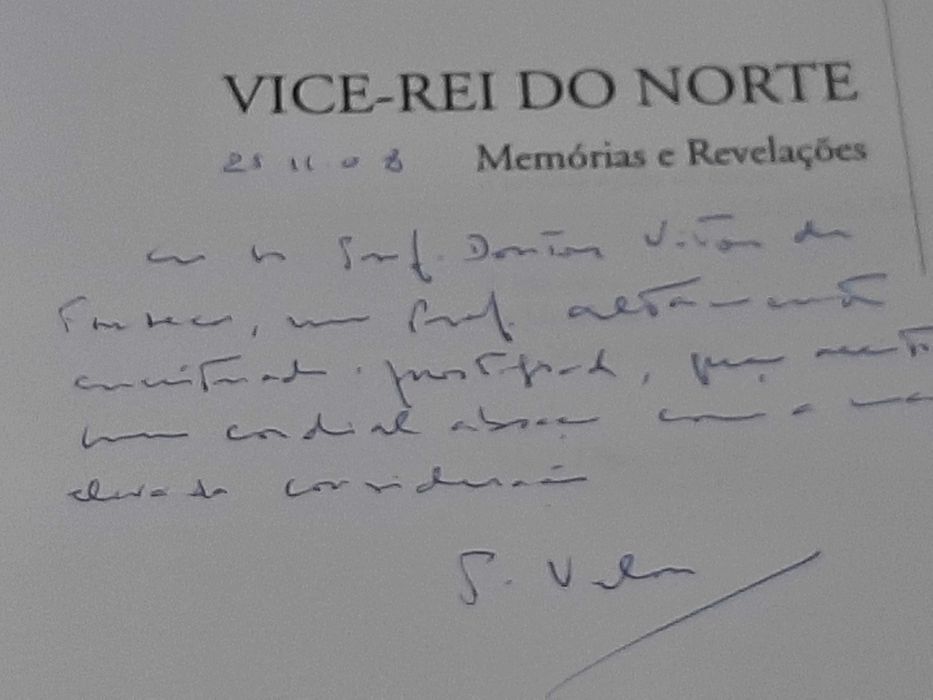 VICE-REI DO NORTE
25 11 08 Memórias e Revelações
Prof. Doutor Vitor da
Fonseca, um Prof. altamente
conceituado prestigiado, que aceite
um cordial abraço com a
elevada consideração